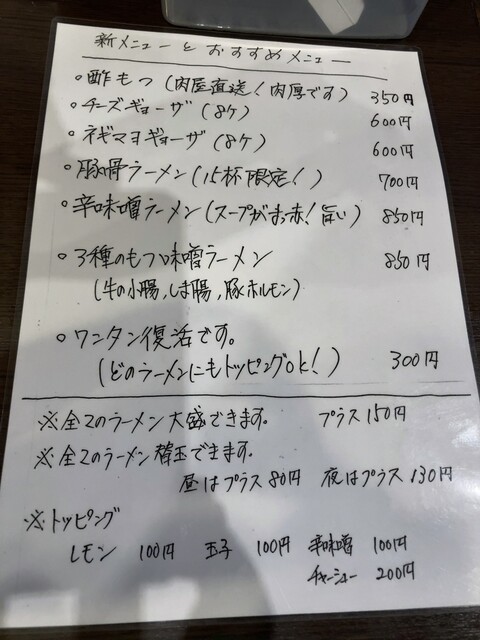 新メニューとおすすめメニュー
○酢もつ(肉屋直送!肉厚です) 350円
○チーズギョーザ(8ケ) 600円
○ネギマヨギョーザ(8ケ) 600円
○豚骨ラーメン(15杯限定!) 700円
○辛味噌ラーメン(スープがまっ赤!旨い) 850円
○3種のもつ味噌ラーメン 850円
(牛の小腸,しま腸,豚ホルモン)
○ワンタン復活です。
(どのラーメンにもトッピングok!) 300円
※全てのラーメン大盛できます。 プラス150円
※全てのラーメン替玉できます。
昼はプラス80円 夜はプラス130円
※トッピング
レモン 100円 玉子 100円 辛味噌 100円
チャーシュー 200円